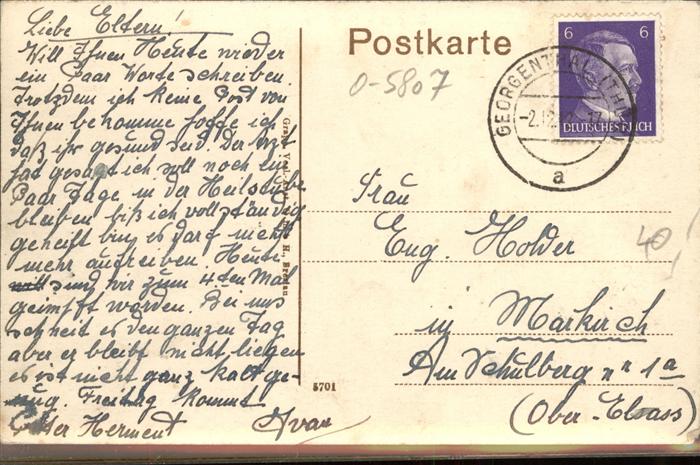 Liebe Eltern!
Will Ihnen Heute wieder
ein Paar Worte schreiben.
Trotzdem ich keine Post von
Ihnen bekomme hoffe ich
daß ihr gesund seid. Der Arzt
hat gesagt ich soll noch ein
Paar Tage in der Heilstube
bleiben biß ich vollständig
geheilt bin, es darf nicht
mehr aufreiben. Heute
sind wir zum 4ten Mal
geimpft worden. Bei uns
schneit es den ganzen Tag
aber er bleibt nicht liegen
es ist nicht ganz kalt ge-
nug. Freitag kommt
Herment
Postkarte
0-5807
6 6
DEUTSCHES REICH
GEORGENTHAL (THÜR)
a
Frau
Eug. Holder
in Markirch
Am Schulberg nr 1a
(Ober-Elsass)
40,
5701